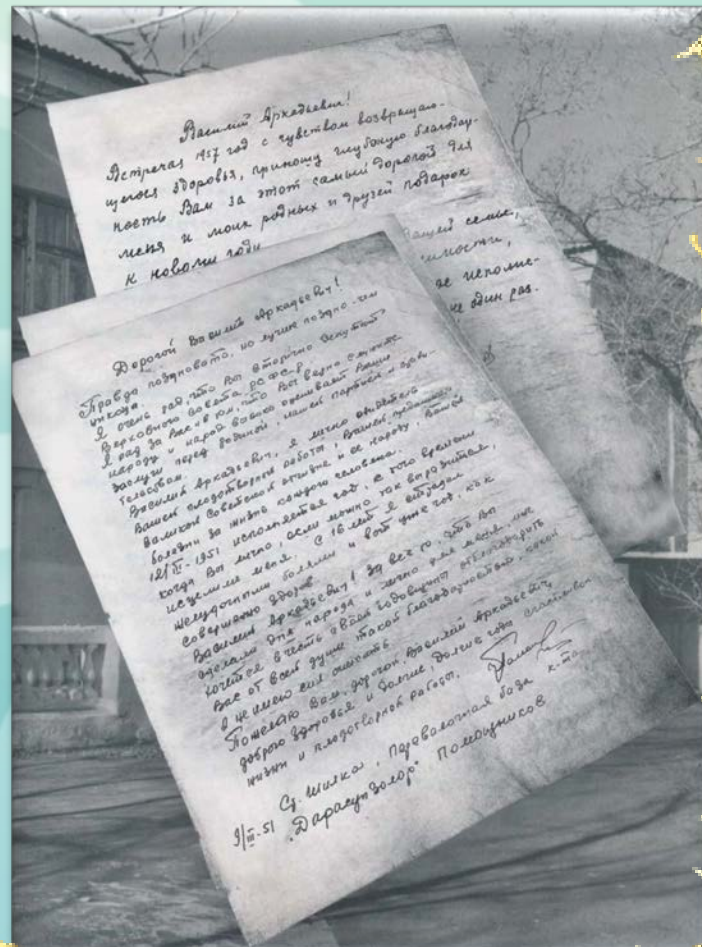 Василий Аркадьевич!
Встречая 1957 год с чувством возвращаю-
щегося здоровья, приношу глубокую благодар-
ность Вам за этот самый дорогой для
меня и моих родных и друзей подарок
к новому году
Вашей семье,
не исполни-
не один раз.
Дорогой Василий Аркадьевич!
Правда поздновато, но лучше поздно чем
никогда.
Я очень рад, что Вы вторично депутат
Верховного Совета РСФСР.
Я рад за Вас и в том, что Вы верно служите
народу и народ высоко оценивает Ваши
заслуги перед Родиной, нашей партией и прави-
тельством.
Василий Аркадьевич, я лично свидетель
Вашей плодотворной работы, Вашей преданности
великой Советской отчизне и ее народу, Вашей
болезни за жизнь каждого человека.
12/III-1951 исполняется год, с того времени
когда Вы лично, если можно так выразиться,
исцелили меня. С 16 лет я страдал
желудочными болями и вот уже год, как
совершенно здоров.
Василий Аркадьевич! За все то, что Вы
сделали для народа и лично для меня, мне
хочется в честь этой годовщины отблагодарить
Вас от всей души такой благодарностью, какой
я не имею сил описать.
Пожелаю Вам, дорогой Василий Аркадьевич,
доброго здоровья и долгие, долгие годы счастливой
жизни и плодотворной работы.
9/III-51 Ст. Шилка, Перевалочная база к-та
"Дарасунзолото" Помощников